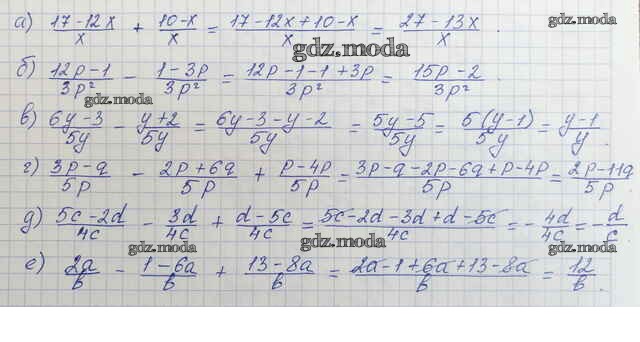 а) (17-12x)/x + (10-x)/x = (17-12x+10-x)/x = (27-13x)/x . gdz.moda
gdz.moda
б) (12p-1)/3p² - (1-3p)/3p² = (12p-1-1+3p)/3p² = (15p-2)/3p² .
gdz.moda
в) (6y-3)/5y - (y+2)/5y = (6y-3-y-2)/5y = (5y-5)/5y = 5(y-1)/5y = (y-1)/y .
gdz.moda
г) (3p-q)/5p - (2p+6q)/5p + (p-4p)/5p = (3p-q-2p-6q+p-4p)/5p = (2p-11q)/5p .
gdz.moda
д) (5c-2d)/4c - 3d/4c + (d-5c)/4c = (5c-2d-3d+d-5c)/4c = - 4d/4c = - d/c .
gdz.moda gdz.moda gdz.moda
е) 2a/b - (1-6a)/b + (13-8a)/b = (2a-1+6a+13-8a)/b = 12/b .